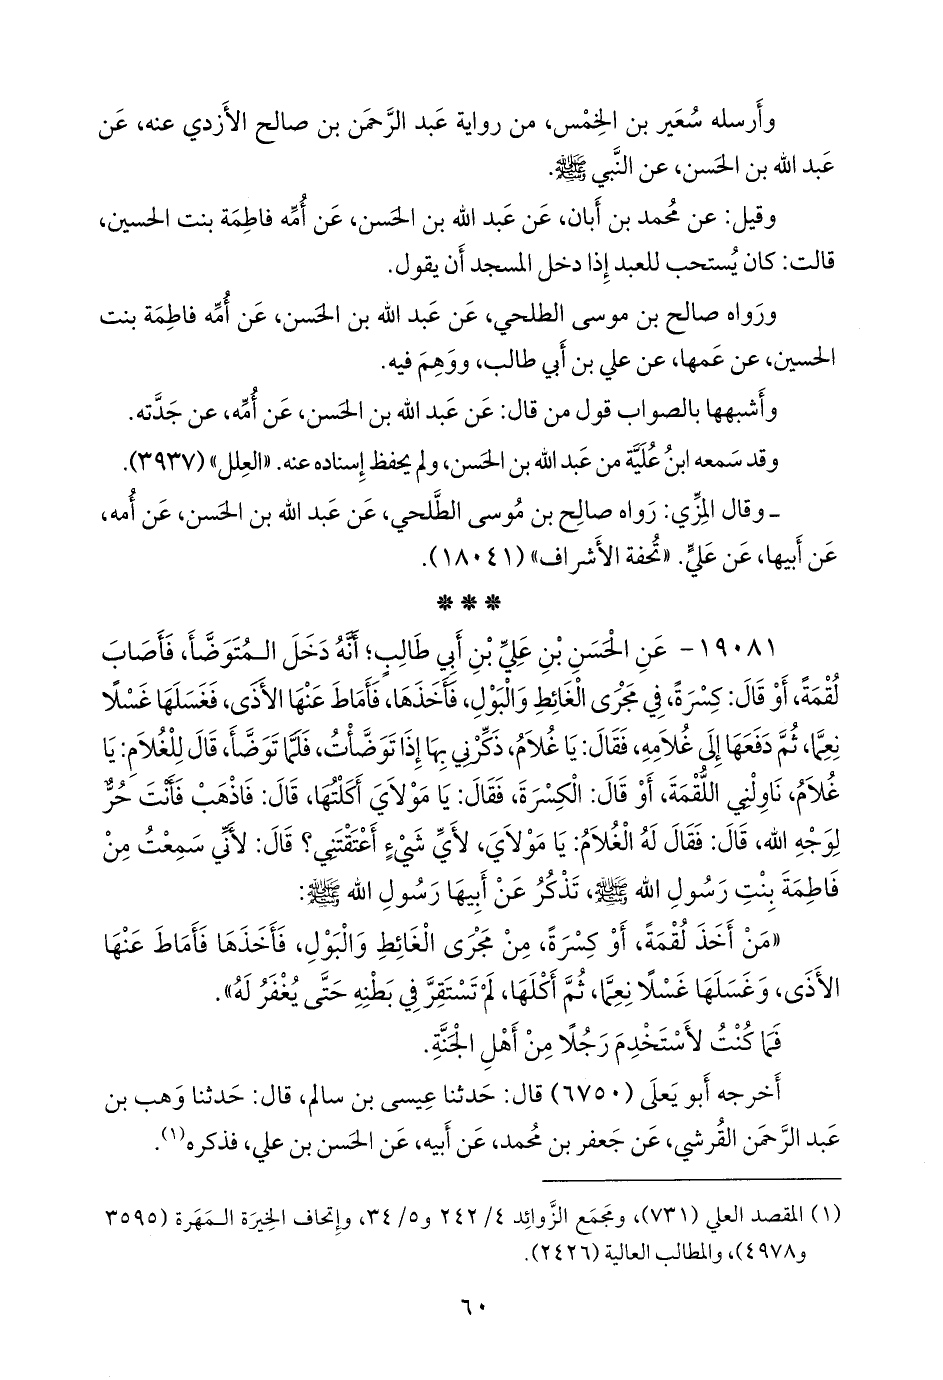 وأَرسله سُعَير بن الخِمْس، من رواية عَبد الرَّحمَن بن صالح الأَزدي عنه، عَن
عَبد الله بن الحَسن، عَن النَّبي ﷺ.
وقيل: عن مُحمد بن أَبان، عَن عَبد الله بن الحَسن، عَن أُمِّه فاطِمَة بنت الحسين،
قالت: كان يُستحب للعبد إِذا دخل المسجد أَن يقول.
ورَواه صالح بن موسى الطلحي، عَن عَبد الله بن الحَسن، عَن أُمِّه فاطِمَة بنت
الحسين، عن عَمها، عن علي بن أَبي طالب، ووَهِمَ فيه.
وأَشبهها بالصواب قول من قال: عَن عَبد الله بن الحَسن، عَن أُمِّه، عن جَدَّته.
وقد سَمعه ابنُ عُلَيَّة من عَبد الله بن الحَسن، ولم يحفظ إِسناده عنه. «العِلل» (٣٩٣٧).
ـ وقال المِزِّي: رَواه صالِح بن مُوسى الطَّلحي، عَن عَبد الله بن الحَسن، عَن أُمه،
عَن أَبيها، عَن عَليٍّ. «تُحفة الأَشراف» (١٨٠٤١).
* * *
١٩٠٨١- عَنِ الْحَسَنِ بْنِ عَلِيِّ بْنِ أَبي طَالِبٍ؛ أَنَّهُ دَخَلَ الْـمُتَوَضَّأَ، فَأَصَابَ
لُقْمَةً، أَوْ قَالَ: كِسْرَةً، فِي مَجْرَى الْغَائِطِ وَالْبَوْلِ، فَأَخَذَهَا، فَأَمَاطَ عَنْهَا الأَذَى، فَغَسَلَهَا غَسْلًا
نِعِمَّا، ثُمَّ دَفَعَهَا إِلَى غُلَامِهِ، فَقَالَ: يَا غُلَامُ، ذَكِّرْنِي بِهَا إِذَا تَوَضَّأْتُ، فَلَمَّا تَوَضَّأَ، قَالَ لِلْغُلَامِ: يَا
غُلَامُ، نَاوِلْنِي اللُّقْمَةَ، أَوْ قَالَ: الْكِسْرَةَ، فَقَالَ: يَا مَوْلَايَ أَكَلْتُهَا، قَالَ: فَاذْهَبْ فَأَنْتَ حُرٌّ
لِوَجْهِ الله، قَالَ: فَقَالَ لَهُ الْغُلَامُ: يَا مَوْلَايَ، لأَيِّ شَيْءٍ أَعْتَقْتَنِي؟ قَالَ: لأَنِّي سَمِعْتُ مِنْ
فَاطِمَةَ بِنْتِ رَسُولِ الله ﷺ، تَذْكُرُ عَنْ أَبِيهَا رَسُولِ الله ﷺ:
«مَنْ أَخَذَ لُقْمَةً، أَوْ كِسْرَةً، مِنْ مَجْرَى الْغَائِطِ وَالْبَوْلِ، فَأَخَذَهَا فَأَمَاطَ عَنْهَا
الأَذَى، وَغَسَلَهَا غَسْلًا نِعِمَّا، ثُمَّ أَكَلَهَا، لَمْ تَسْتَقِرَّ فِي بَطْنِهِ حَتَّى يُغْفَرُ لَهُ».
فَمَا كُنْتُ لأَسْتَخْدِمَ رَجُلًا مِنْ أَهْلِ الْجَنَّةِ.
أَخرجه أَبو يَعلَى (٦٧٥٠) قال: حَدثنا عِيسى بن سالم، قال: حَدثنا وَهب بن
عَبد الرَّحمَن القُرشي، عَن جَعفر بن مُحمد، عَن أَبيه، عَن الحَسن بن علي، فذكره(١).
(١) المقصد العلي (٧٣١)، ومَجمَع الزَّوائِد ٤/ ٢٤٢ و٥/ ٣٤، وإِتحاف الخِيرَة الـمَهَرة (٣٥٩٥
و٤٩٧٨)، والمطالب العالية (٢٤٢٦).
٦٠